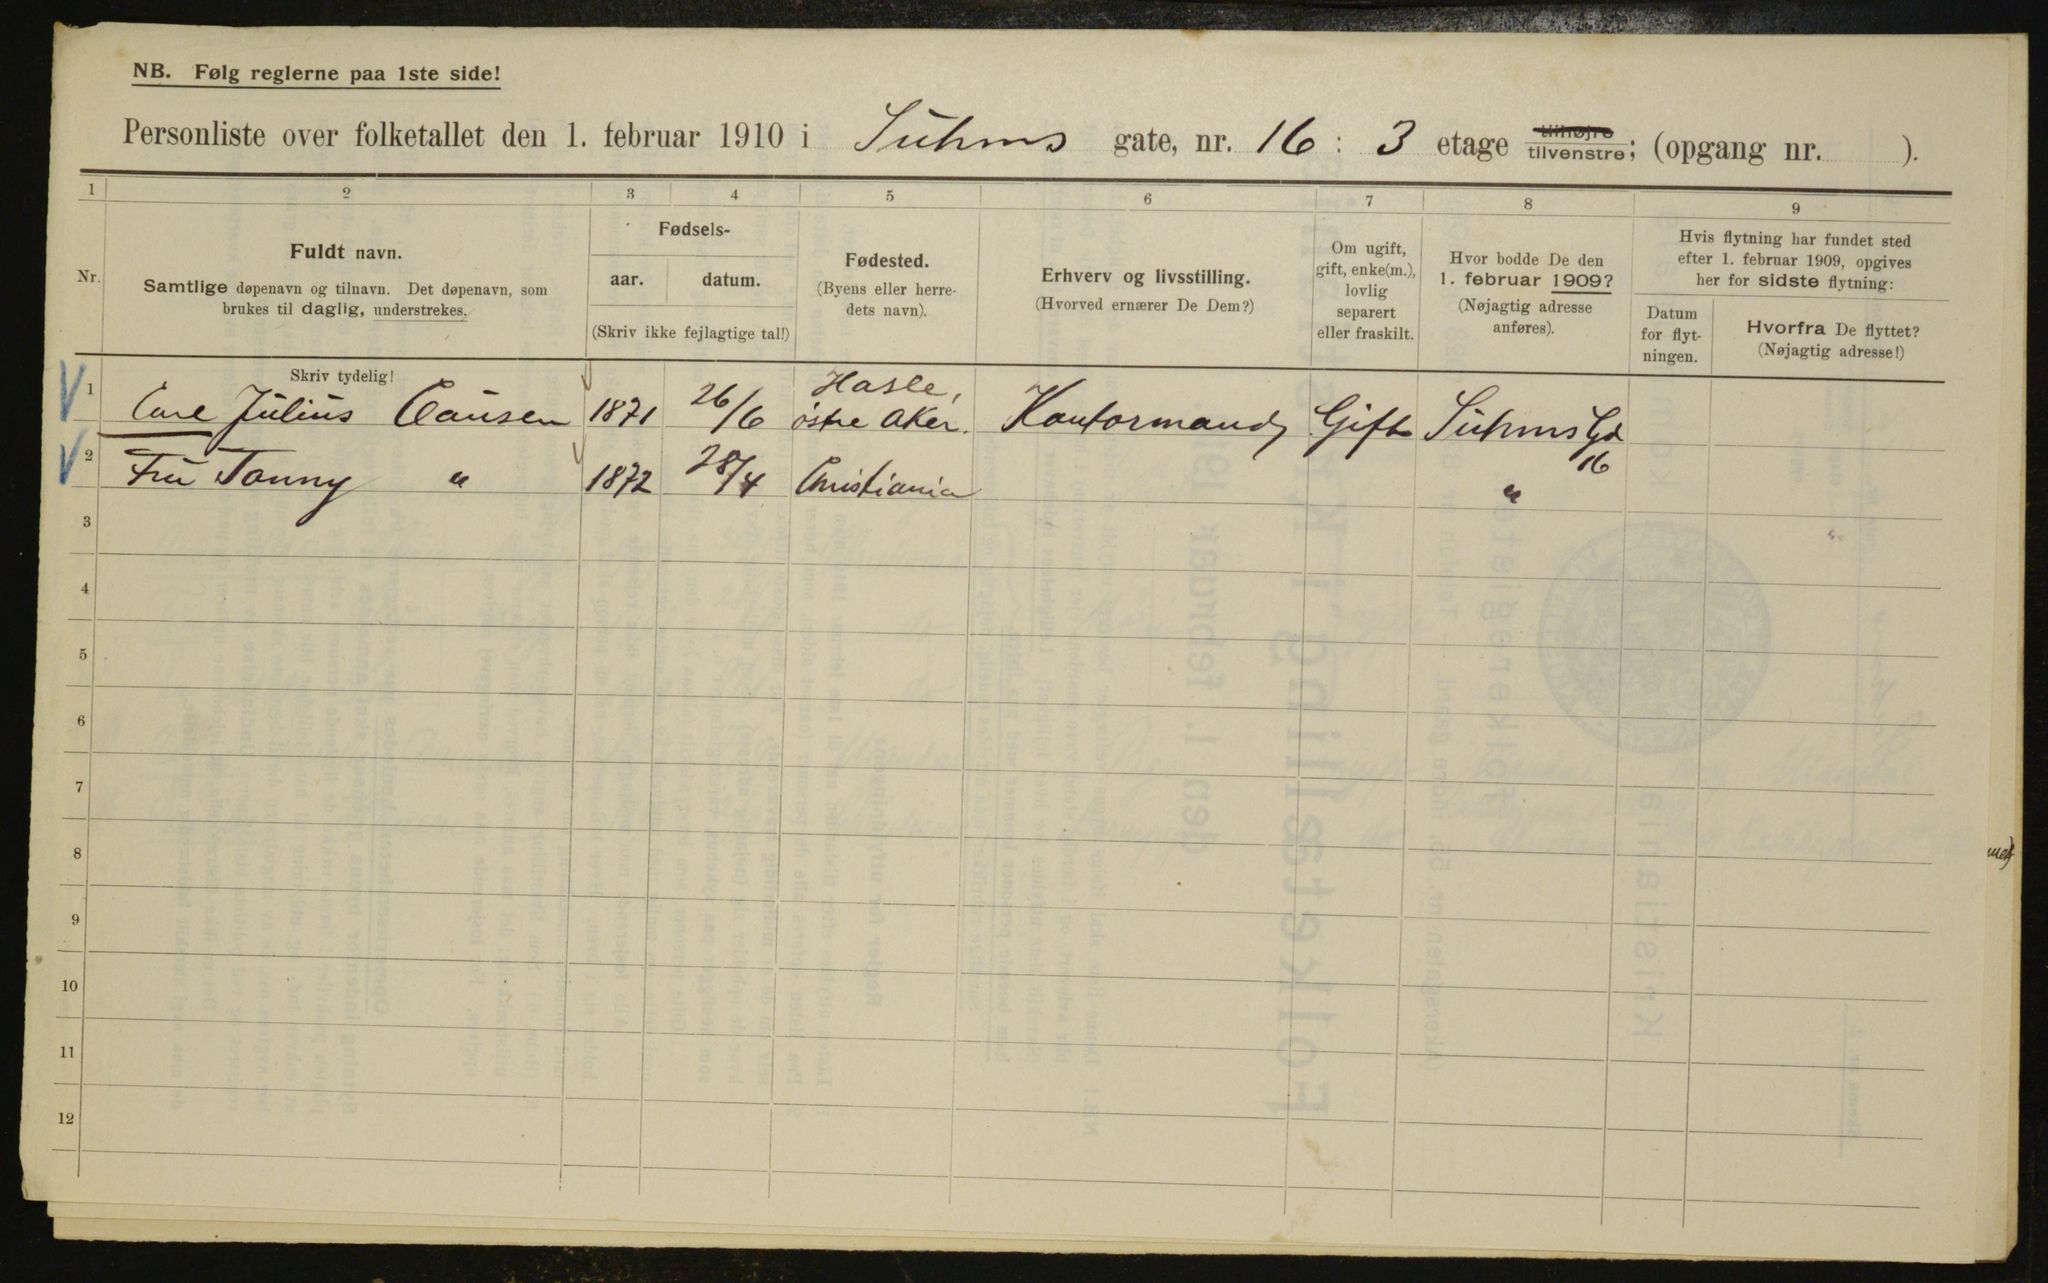 NB. Følg reglerne paa 1ste side!
Personliste over folketallet den 1. februar 1910 i Suhms gate, nr. 16 : 3 etage tilhøjre tilvenstre; (opgang nr. ).
1 2 3 4 5 6 7 8 9
Nr.
Fuldt navn.
Samtlige døpenavn og tilnavn. Det døpenavn, som
brukes til daglig, understrekes.
Fødsels-
aar. datum.
(Skriv ikke fejlagtige tal!)
Fødested.
(Byens eller herre-
dets navn).
Erhverv og livsstilling.
(Hvorved ernærer De Dem?)
Om ugift,
gift, enke(m.),
lovlig
separert
eller fraskilt.
Hvor bodde De den
1. februar 1909?
(Nøjagtig adresse
anføres).
Hvis flytning har fundet sted
efter 1. februar 1909, opgives
her for sidste flytning:
Datum
for flyt-
ningen.
Hvorfra De flyttet?
(Nøjagtig adresse!)
Skriv tydelig!
1 Carl Julius Clausen 1871 26/6 Hasle, østre Aker. Kontormand Gift Suhms Gd 16
2 Fru Fanny " 1872 28/4 Christiania "
3
4
5
6
7
8
9
10
11
12